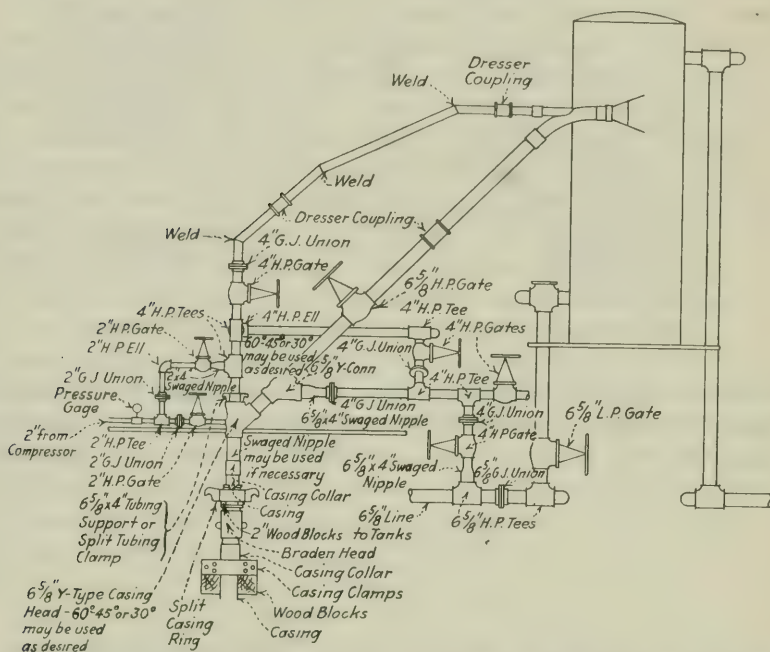 Dresser
Coupling
Weld
Weld
Dresser Coupling
Weld
4"G.J. Union
4"H.P. Gate
6 5/8" H.P. Gate
4"H.P. Tee
4"H.P. Tees
4"H.P. Ell
4"H.P. Gates
2"H.P. Gate
2"H.P. Ell
60° 45° or 30°
may be used
as desired
6 5/8" Y-Conn
4"G.J. Union
4"H.P. Tee
2"x4"
Swaged Nipple
2"G.J. Union
Pressure
Gage
4"G.J. Union
6 5/8"x4" Swaged Nipple
4"G.J. Union
4"H.P. Gate
6 5/8" L.P. Gate
2"from
Compressor
2"H.P. Tee
2"G.J. Union
2"H.P. Gate
Swaged Nipple
may be used
if necessary
6 5/8"x4" Swaged
Nipple
6 5/8" G.J. Union
Casing Collar
Casing
6 5/8"x4" Tubing
Support or
Split Tubing
Clamp
2" Wood Blocks
6 5/8" Line
to Tanks
6 5/8" H.P. Tees
Braden Head
Casing Collar
Casing Clamps
Wood Blocks
Casing
6 5/8" Y-Type Casing
Head - 60° 45° or 30°
may be used
as desired
Split
Casing
Ring